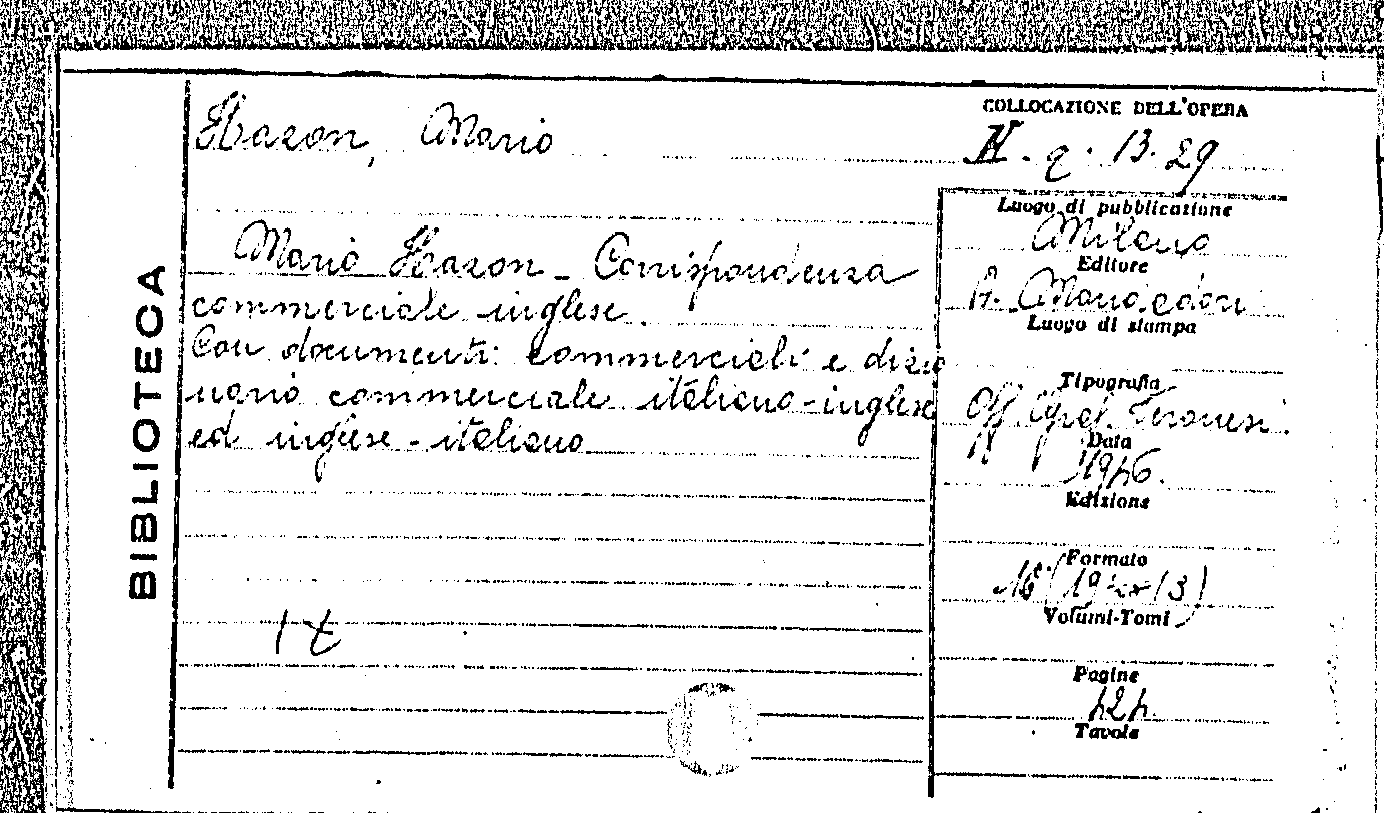 BIBLIOTECA
Hazon, Mario
COLLOCAZIONE DELL'OPERA
II. q. 13. 29
Mario Hazon - Corrispondenza
commerciale inglese.
Con documenti commerciali e dizio
nario commerciale italiano-inglese
ed inglese-italiano
1 t
Luogo di pubblicazione
Milano
Editore
A. Mondadori
Luogo di stampa
Tipografia
Off. Graf. Veronesi.
Data
1946.
Edizione
Formato
16° (19 x 13)
Volumi-Tomi
Pagine
424
Tavole